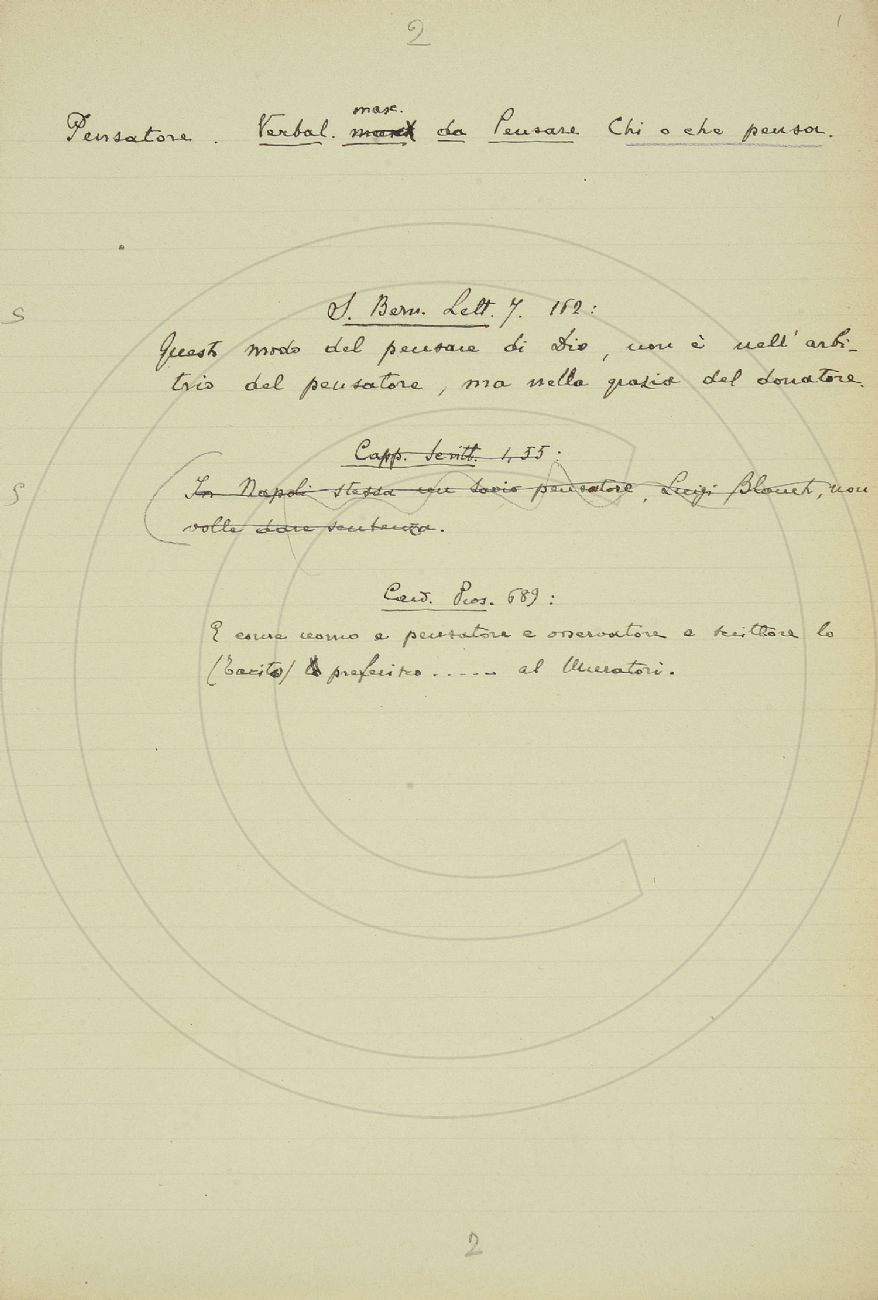 2
masc.
Pensatore. Verbal. da Pensare Chi o che pensa.
S. Bern. Lett. 7. 162:
Questo modo del pensare di Dio, non è nell'arbi-
trio del pensatore, ma nella grazia del donatore.
S
Capp. Scritt. 1, 55:
In Napoli stessa un savio pensatore, Luigi Blanch, non
volle dare sentenza.
S
Card. Pros. 689:
E come uomo e pensatore e osservatore e scrittore lo
(Tacito) preferisco..... al Muratori.
2